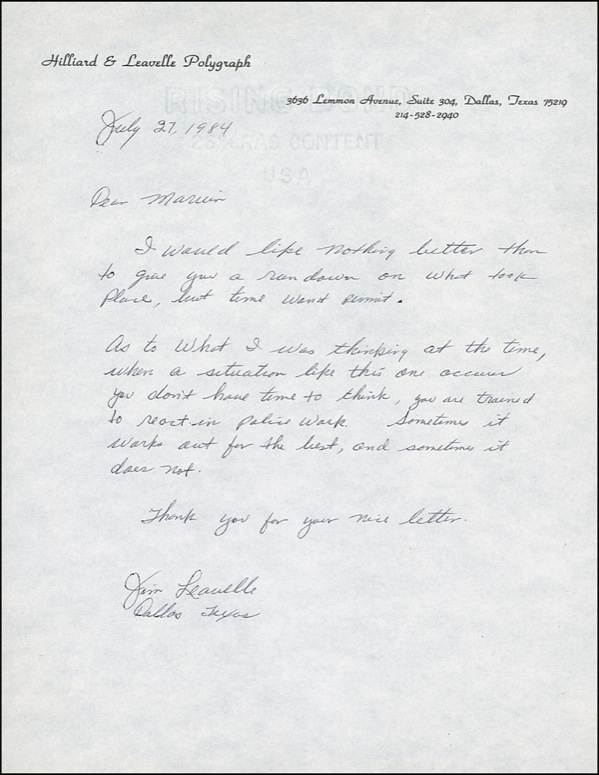 Hilliard & Leavelle Polygraph
RISING BOND
3636 Lemmon Avenue, Suite 304, Dallas, Texas 75219
214-528-2940
July 27, 1984
25% RAG CONTENT
USA
Dear Marvin
I would like nothing better than
to give you a rundown on what took
place, but time wont permit.
As to what I was thinking at the time,
when a situation like this one occurs
you don't have time to think, you are trained
to react in police work. Sometimes it
works out for the best, and sometimes it
does not.
Thank you for your nice letter.
Jim Leavelle
Dallas Texas